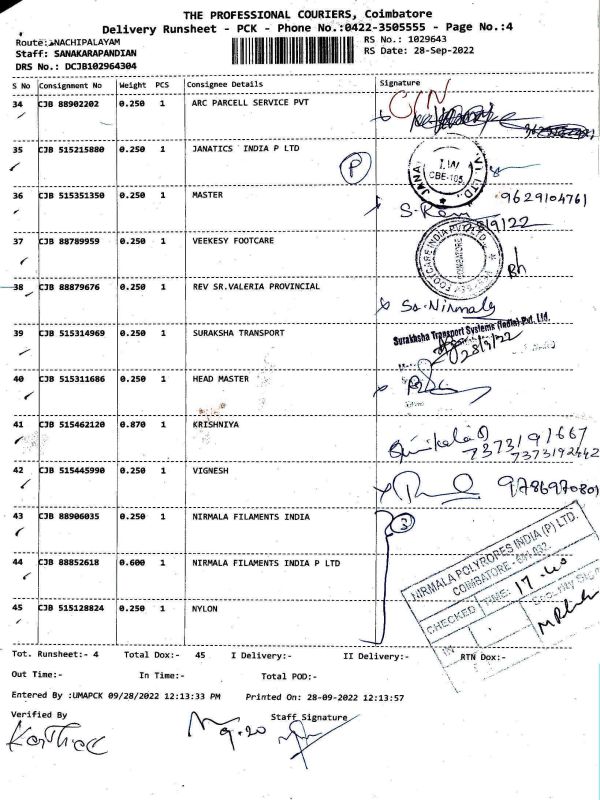 THE PROFESSIONAL COURIERS, Coimbatore
Delivery Runsheet - PCK - Phone No.:0422-3505555 - Page No.:4
Route:NACHIPALAYAM RS No.: 1029643
Staff: SANAKARAPANDIAN RS Date: 28-Sep-2022
DRS No.: DCJB102964304
S No Consignment No Weight PCS Consignee Details Signature
34 CJB 88902202 0.250 1 ARC PARCELL SERVICE PVT
35 CJB 515215880 0.250 1 JANATICS INDIA P LTD P
CBE-105
36 CJB 515351350 0.250 1 MASTER 9629104761
37 CJB 88789959 0.250 1 VEEKESY FOOTCARE
FOOTCARE INDIA PVT LTD
COIMBATORE
38 CJB 88879676 0.250 1 REV SR.VALERIA PROVINCIAL
Sr. Nirmala
39 CJB 515314969 0.250 1 SURAKSHA TRANSPORT
Suraksha Transport Systems (India) Pvt. Ltd.
28/9/22
40 CJB 515311686 0.250 1 HEAD MASTER
41 CJB 515462120 0.870 1 KRISHNIYA
7373191667
7373192442
42 CJB 515445990 0.250 1 VIGNESH 9786970801
43 CJB 88906035 0.250 1 NIRMALA FILAMENTS INDIA 3
44 CJB 88852618 0.600 1 NIRMALA FILAMENTS INDIA P LTD
45 CJB 515128824 0.250 1 NYLON
NIRMALA POLYROPES INDIA (P) LTD.
COIMBATORE - 641 032.
CHECKED TIME: 17.40
Tot. Runsheet:- 4 Total Dox:- 45 I Delivery:- II Delivery:- RTN Dox:-
Out Time:- In Time:- Total POD:-
Entered By :UMAPCK 09/28/2022 12:13:33 PM Printed On: 28-09-2022 12:13:57
Verified By Staff Signature